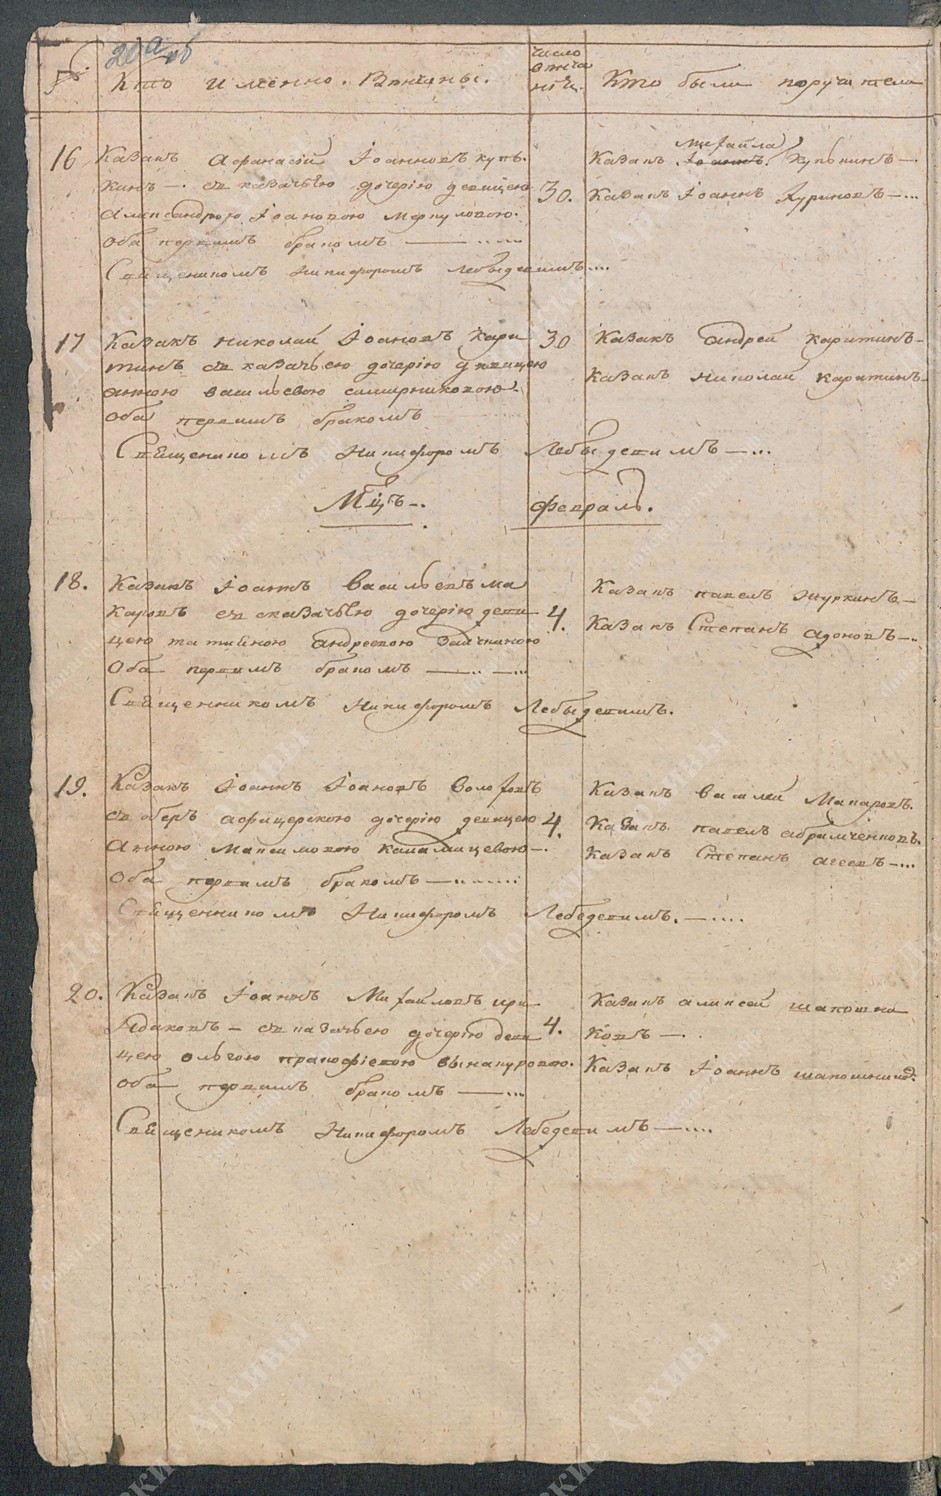 20а об
Кто именно. Венчаны.
число венчания.
Кто были поручители
16
Казакъ Афанасій Іоанновъ купъ-
кинъ —. съ казачъею дочерію девицею
Александрою Іоановою Меркуловою.
оба первымъ бракомъ
Священикомъ Никифоромъ Лебедевымъ
30.
Казакъ Михайла Купкинъ —.
Казакъ Іоаннъ Чуриковъ
17
Казакъ Николай Іоановъ Кари
тинъ съ казачьею дочерію девицею
анною васильевою
оба первымъ бракомъ
Священикомъ Никифоромъ Лебедевымъ
30
Казакъ андрей Каритинъ
Казакъ Николай Каритинъ
Мцъ —. Февраль.
18.
Казакъ Іоаннъ васильевъ ма
каровъ съ казачъею дочерію деви
цею татианою андреевою
оба первымъ бракомъ
Священникомъ Никифоромъ Лебедевымъ.
4.
Казакъ павелъ журкинъ
Казакъ Степанъ адоновъ
19.
Казакъ Іоаннъ Іоановъ Болоховъ
съ оберъ афицерскою дочерію девицею
Анною Максимовою
оба первымъ бракомъ
Священникомъ Никифоромъ Лебедевымъ.
4.
Казакъ василей Макаровъ.
Казакъ павелъ абрамченковъ.
Казакъ Степанъ агеевъ
20.
Казакъ Іоаннъ Михайловъ
съ казачъею дочерію деви
цею ольгою прокофіевою
оба первымъ бракомъ
Священикомъ Никифоромъ Лебедевымъ
4.
Казакъ алексей шапошни
ковъ —.
Казакъ Іоаннъ шапошников.